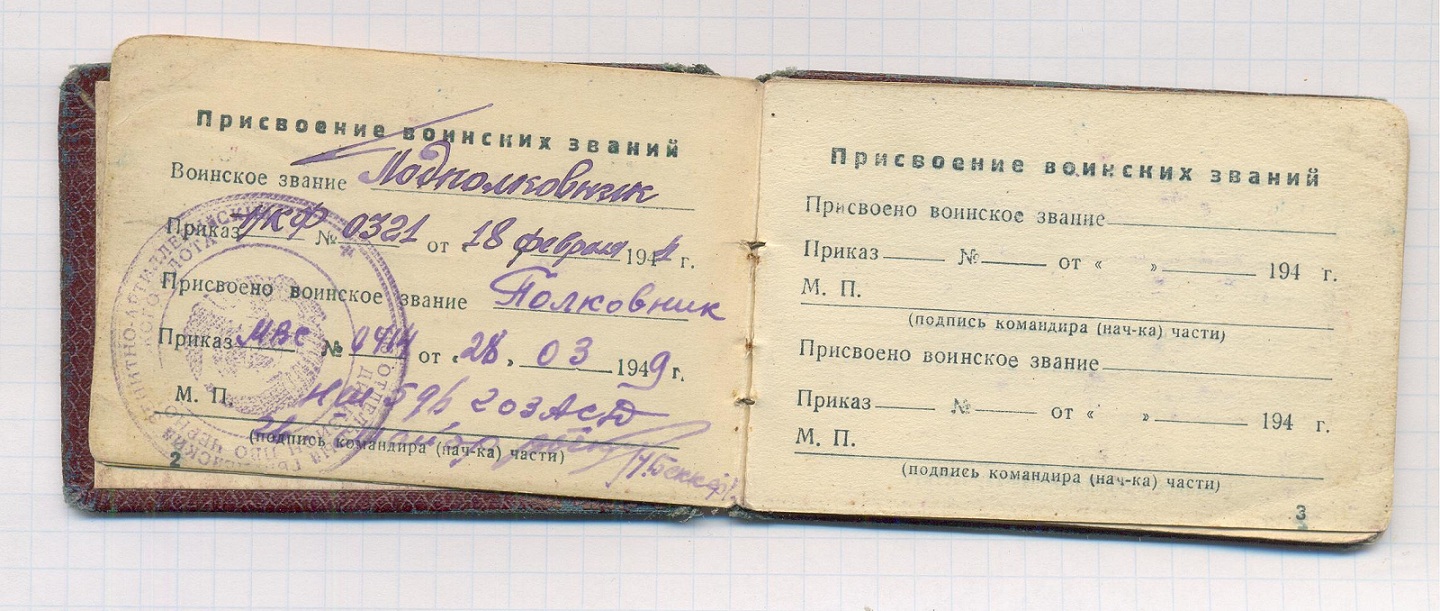 Присвоение воинских званий
Воинское звание Подполковник
Приказ НКФ № 0321 от „18 февраля 1944 г.
Присвоено воинское звание Полковник
Приказ МВС № 0414 от „28„ 03 1949 г.
М. П.
(подпись командира (нач-ка) части)
2
Присвоение воинских званий
Присвоено воинское звание
Приказ № от « » 194 г.
М. П.
(подпись командира (нач-ка) части)
Присвоено воинское звание
Приказ № от « » 194 г.
М. П.
(подпись командира (нач-ка) части)
3